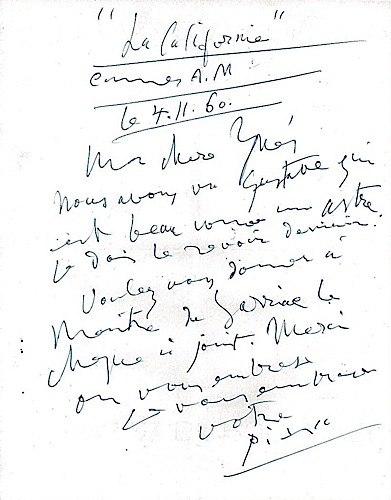 "La Californie"
Cannes A.M
le 4.11.60.
Ma chere Inés
Nous avons vu Gustave qui
est beau comme un astre
Je dois le revoir demain.
Voulez vous donner à
Maitre de le
cheque ci joint. Merci
on vous embrasse
Je vous embrasse
votre
Picasso